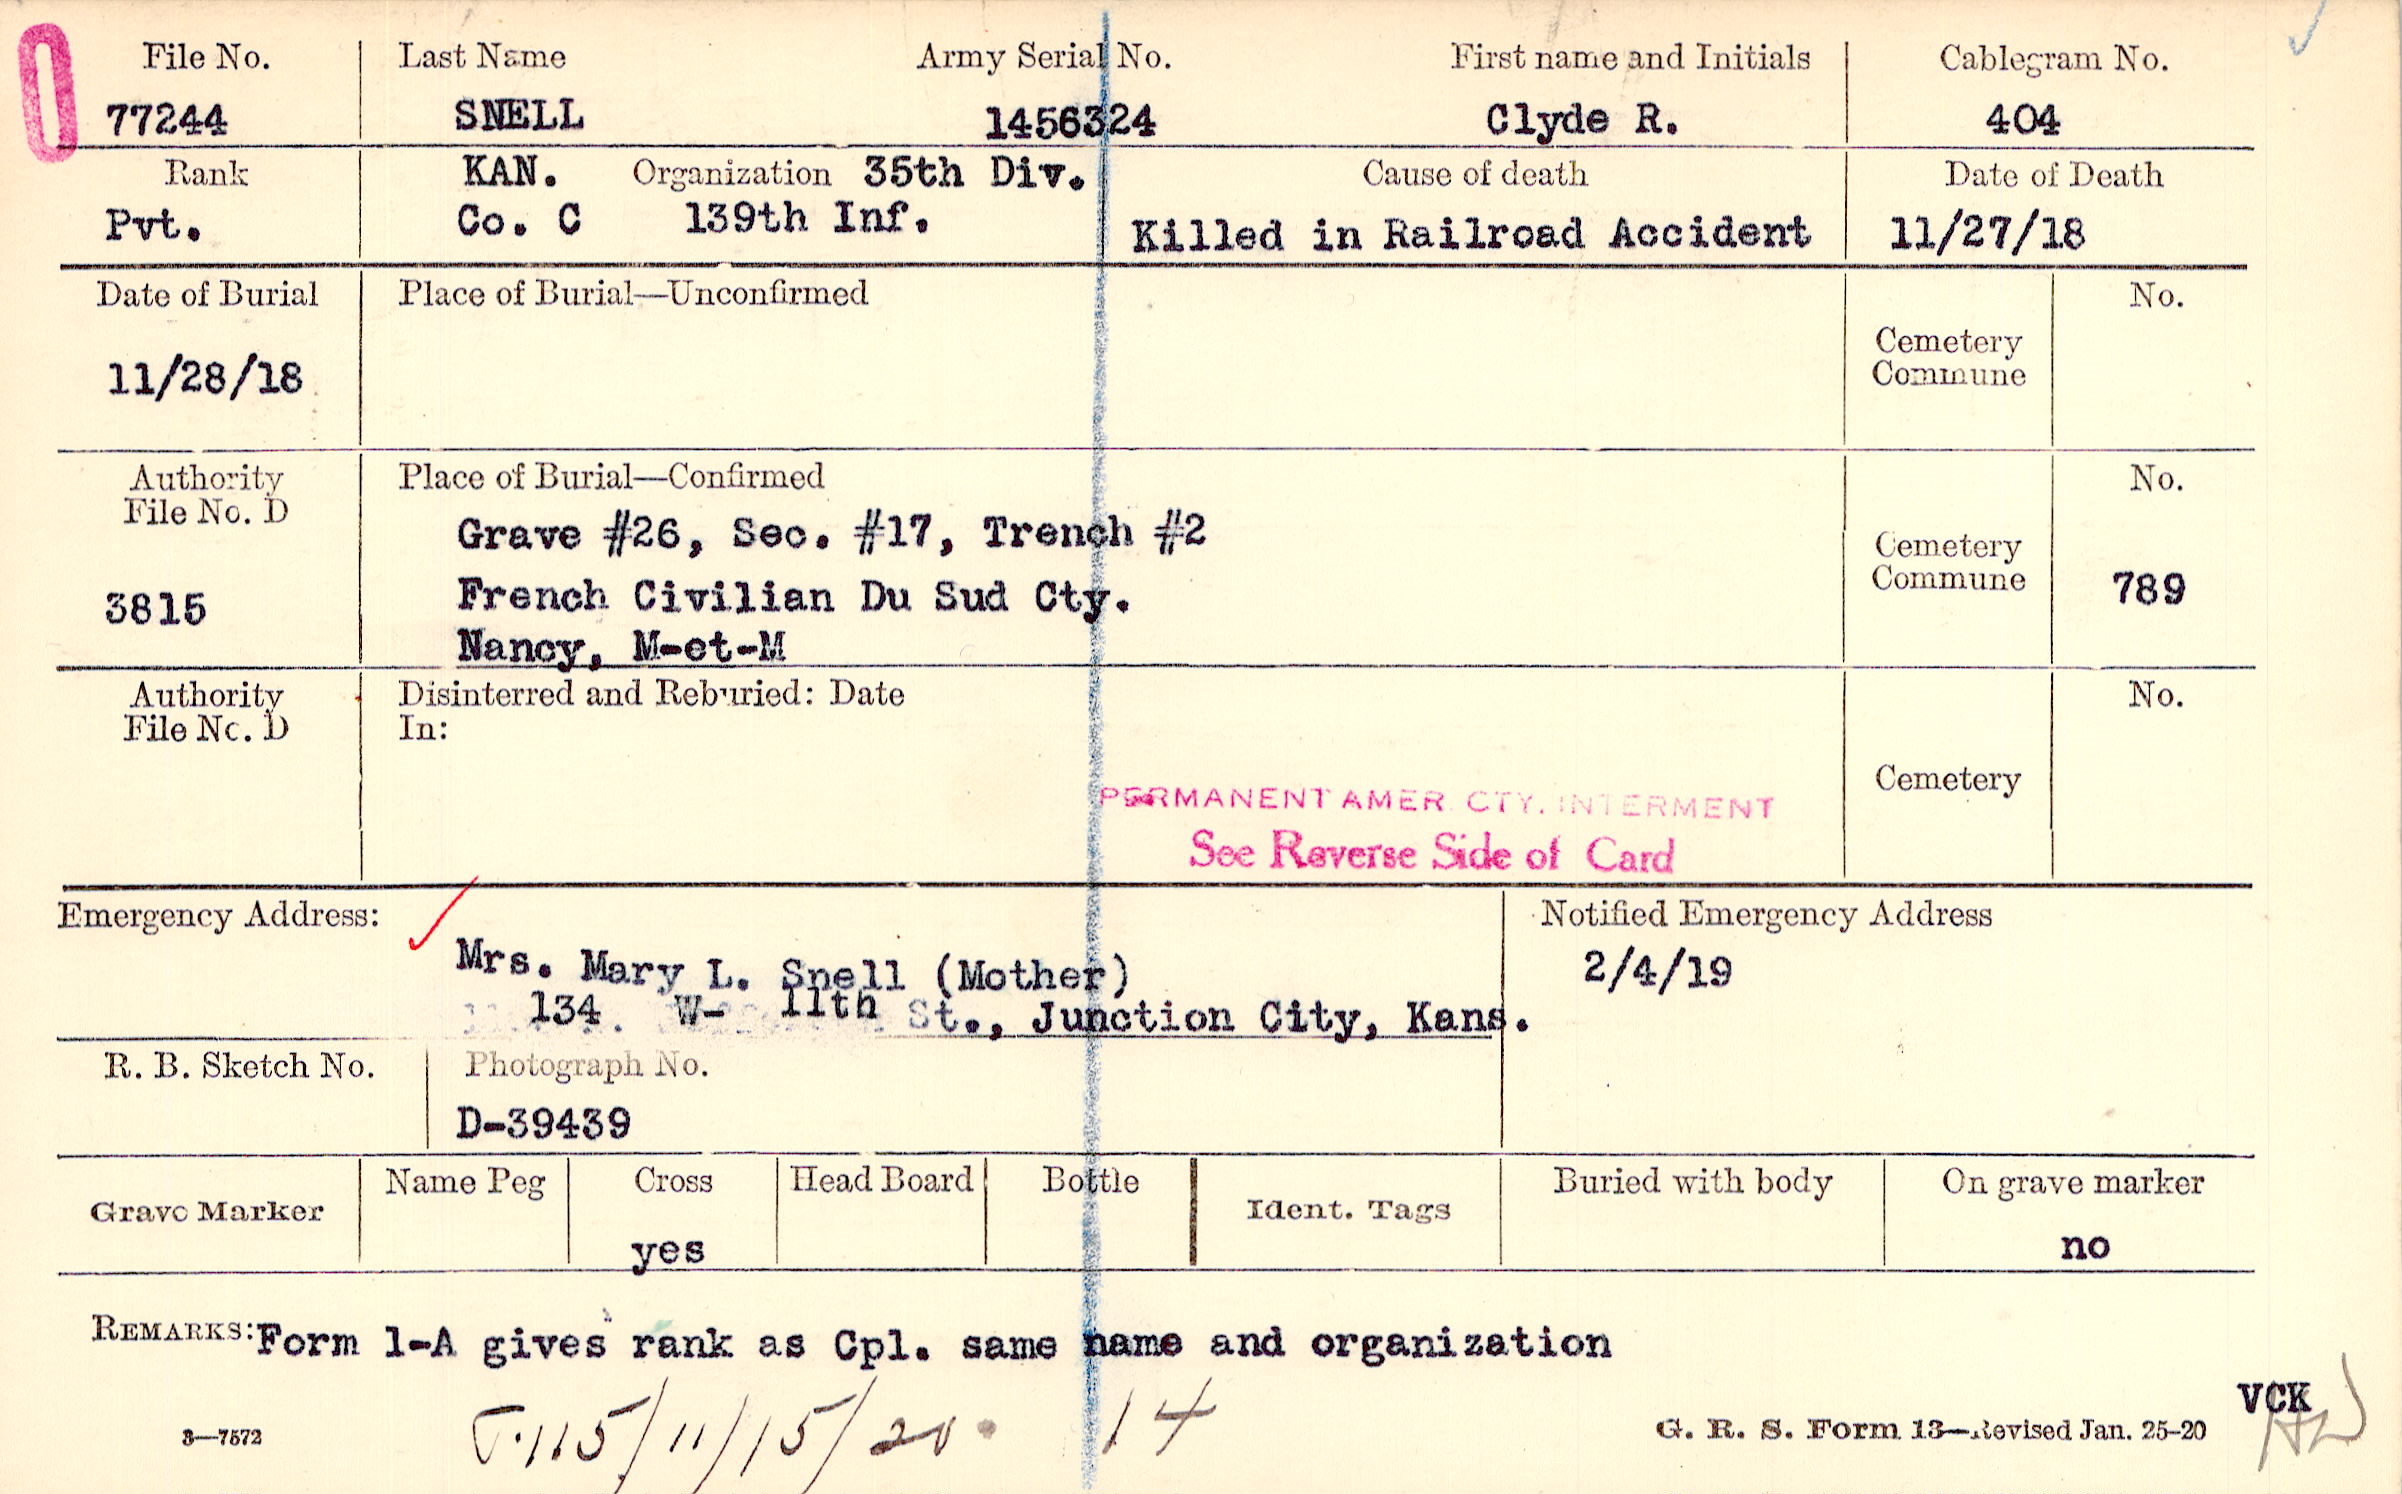 File No. Last Name Army Serial No. First name and Initials Cablegram No.
77244 SNELL 1456324 Clyde R. 404
Rank KAN. Organization 35th Div. Cause of death Date of Death
Pvt. Co. C 139th Inf. Killed in Railroad Accident 11/27/18
Date of Burial Place of Burial—Unconfirmed No.
Cemetery
Commune
11/28/18
Authority Place of Burial—Confirmed No.
File No. D
Grave #26, Sec. #17, Trench #2
Cemetery
Commune
3815 French Civilian Du Sud Cty. 789
Nancy, M-et-M
Authority Disinterred and Reburied: Date No.
File No. D In:
Cemetery
PERMANENT AMER. CTY. INTERMENT
See Reverse Side of Card
Emergency Address: Notified Emergency Address
Mrs. Mary L. Snell (Mother) 2/4/19
134 W- 11th St., Junction City, Kans.
R. B. Sketch No. Photograph No.
D-39439
Grave Marker Name Peg Cross Head Board Bottle Ident. Tags Buried with body On grave marker
yes no
REMARKS: Form 1-A gives rank as Cpl. same name and organization
VCK
115/11/15/20 14
3—7572 G. R. S. Form 13—Revised Jan. 25-20